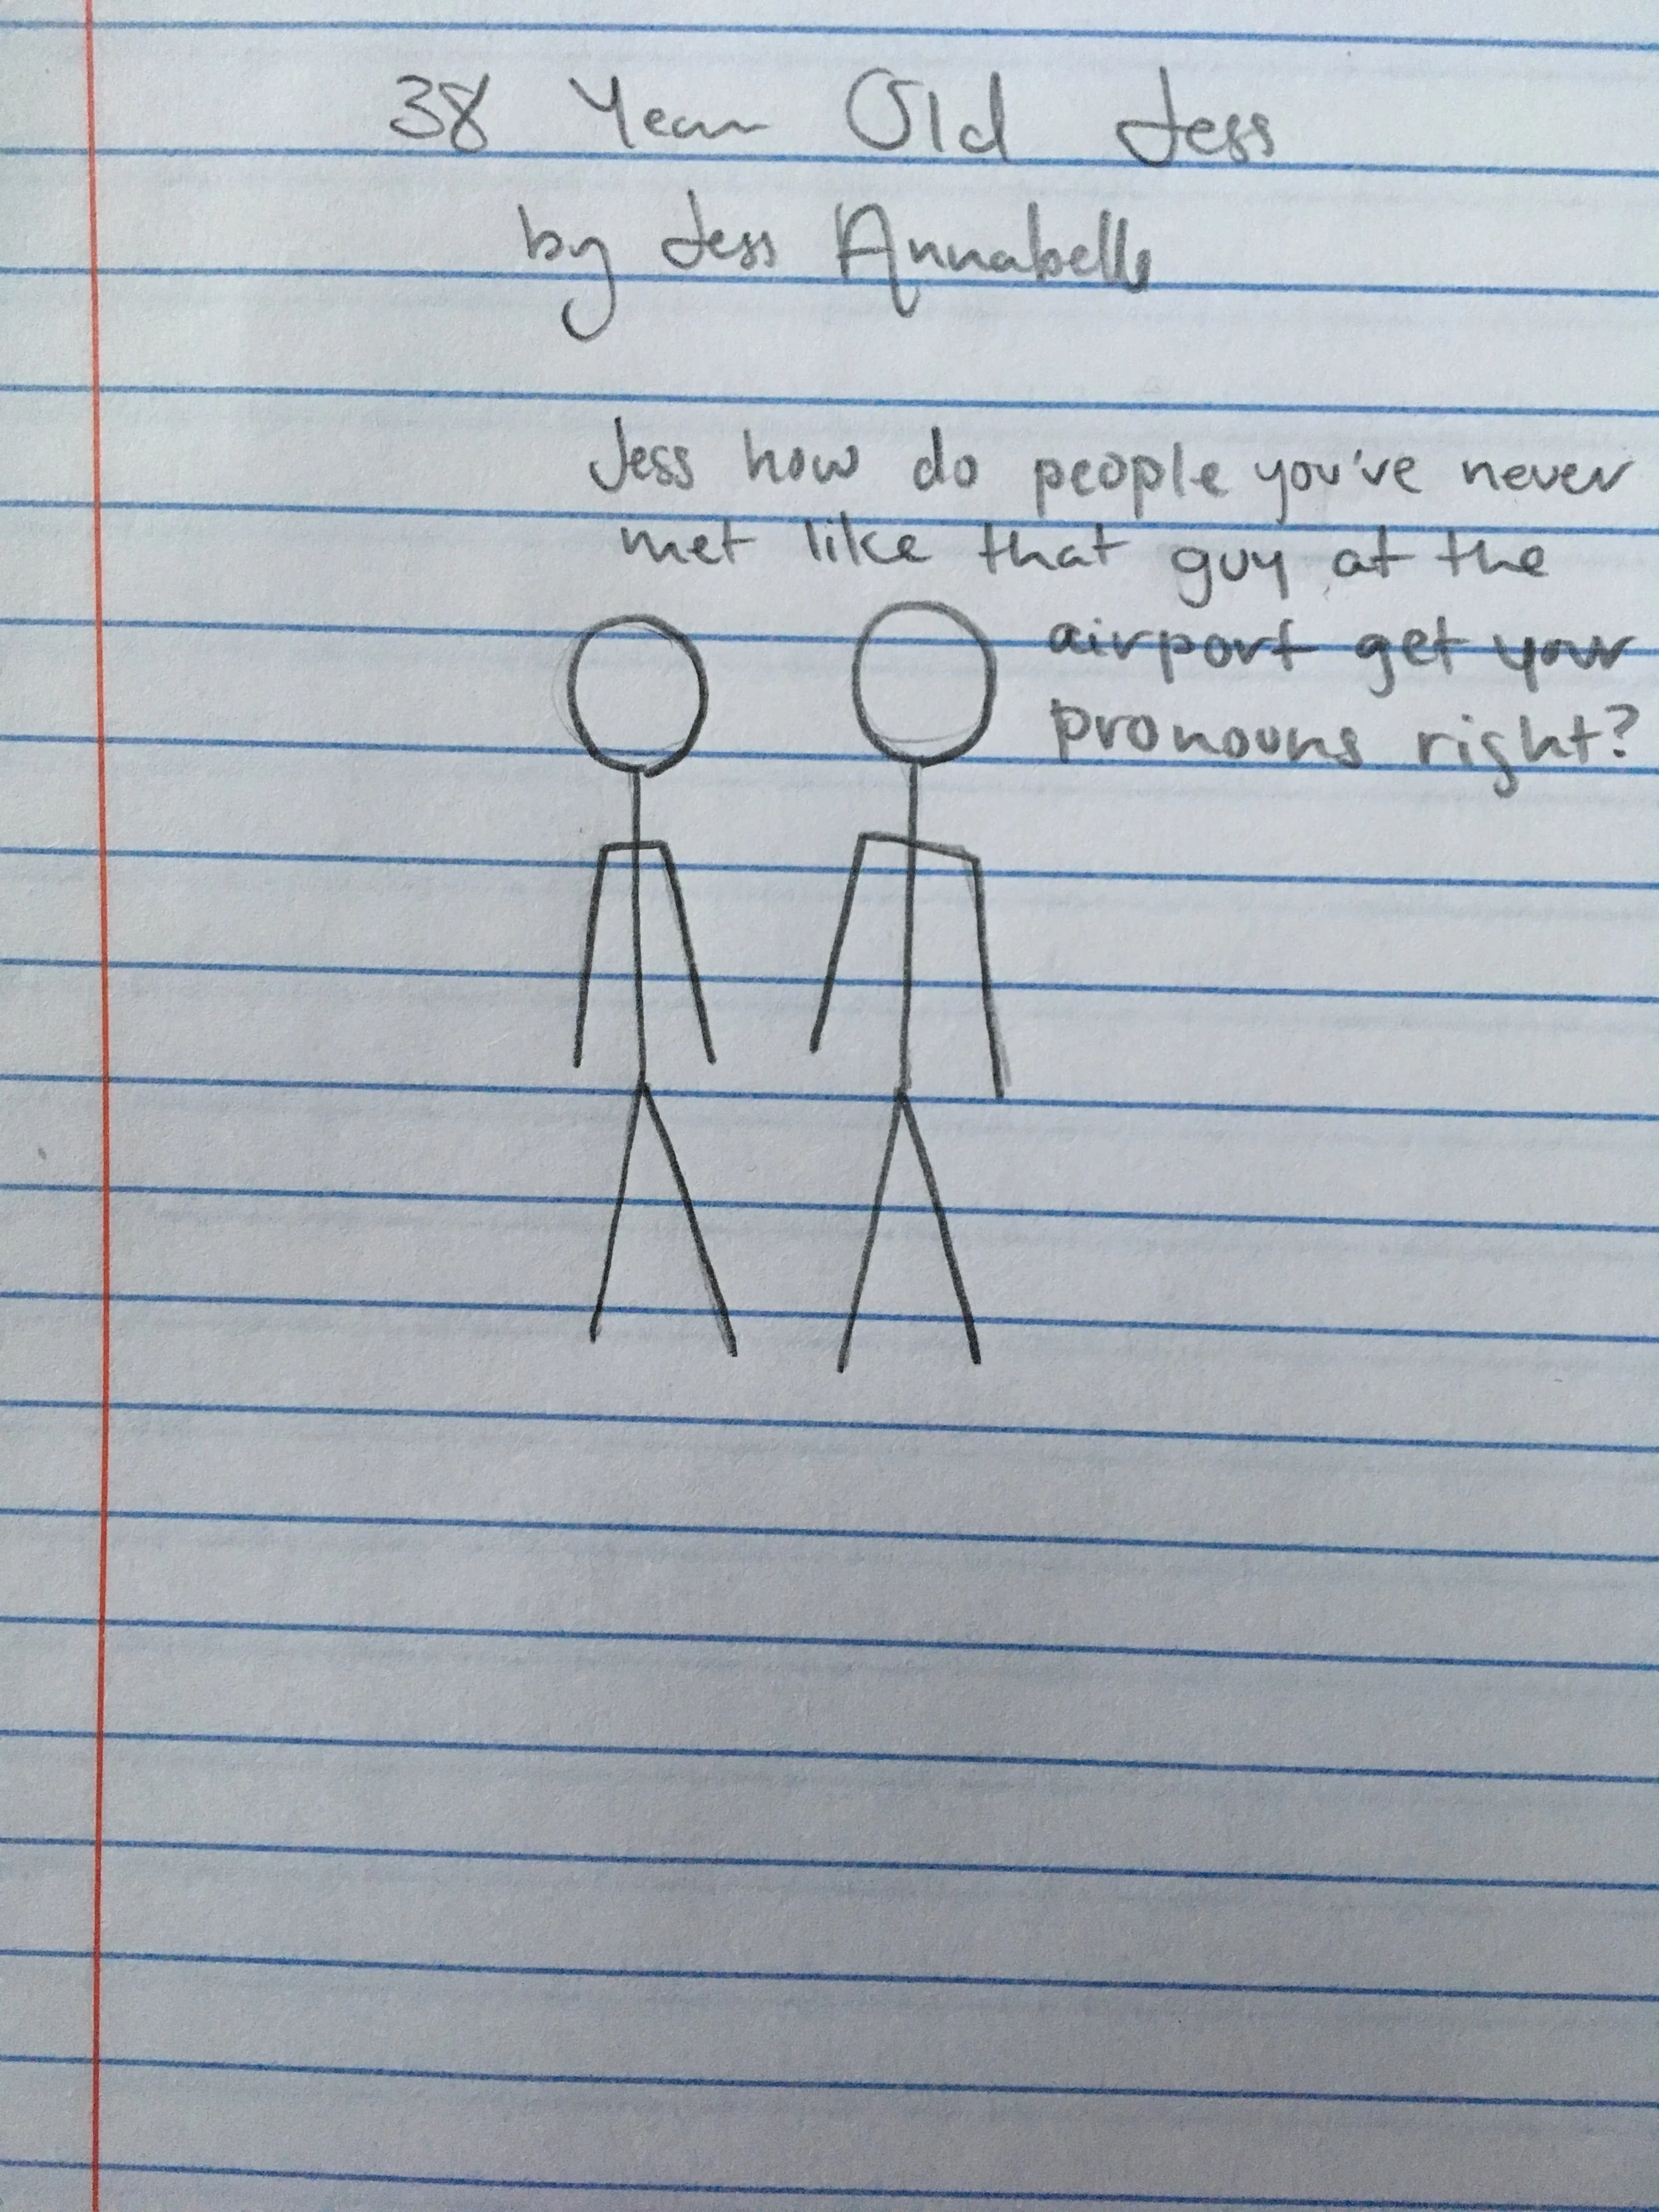 38 Year Old Jess
by Jess Annabelle
Jess how do people you've never
met like that guy at the
airport get your
pronouns right?